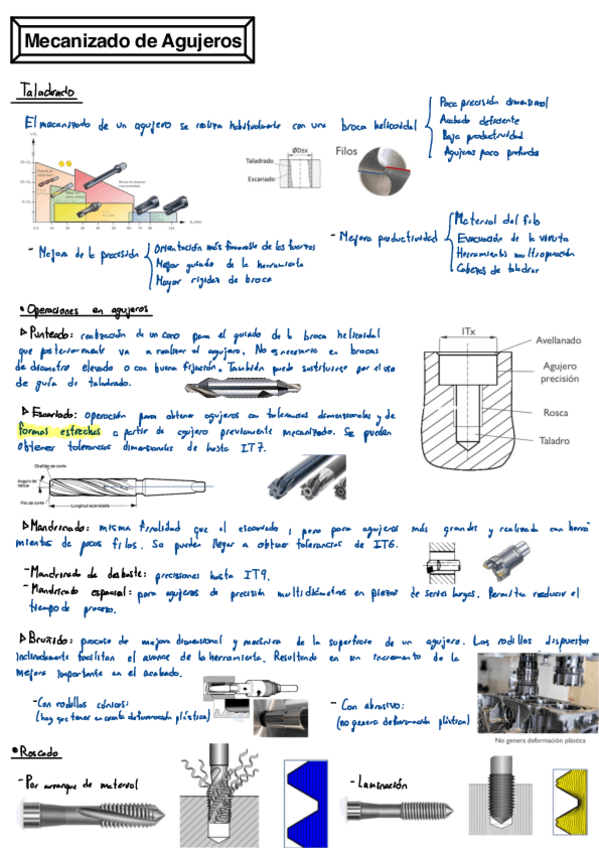 Mecanizado de Agujeros
Taladrado
El mecanizado de un agujero se realiza habitualmente con una broca helicoidal
Poca precisión dimensional
Acabado deficiente
Baja productividad
Agujeros poco profundos
ØDtx
Taladrado
Escariado
Filos
- Mejora de la precisión
Orientación más favorable de las fuerzas
Mejor guiado de la herramienta
Mayor rigidez de broca
- Mejora productividad
Material del filo
Evacuación de la viruta
Herramientas multioperación
Cabezas de taladrar
• Operaciones en agujeros
▷ Punteado: realización de un cono para el guiado de la broca helicoidal
que posteriormente va a realizar el agujero. No es necesario en brocas
de diametro elevado o con buena fijación. También puede sustituirse por el uso
de guía de taladrado.
ITx
Avellanado
Agujero
precisión
Rosca
Taladro
▷ Escariado: operación para obtener agujeros con tolerancias dimensionales y de
formas estrechas a partir de agujero previamente mecanizado. Se pueden
obtener tolerancias dimensionales de hasta IT7.
Chaflán de corte
Ángulo de
hélice
Filo de corte
Longitud acanalada
▷ Mandrinado: misma finalidad que el escariado, pero para agujeros más grandes y realizada con herra
mientas de pocos filos. Se pueden llegar a obtener tolerancias de IT6.
- Mandrinado de desbaste: precisiones hasta IT9.
- Mandrinado especial: para agujeros de precisión multidiámetros en piezas de series largas. Permiten reducir el
tiempo de proceso.
▷ Bruñido: proceso de mejora dimensional y mecánica de la superficie de un agujero. Los rodillos dispuestos
inclinadamente facilitan el avance de la herramienta. Resultando en un incremento de la
mejora importante en el acabado.
- Con rodillos cónicos:
(hay que tener en cuenta deformación plástica)
- Con abrasivo:
(no genera deformación plástica)
No genera deformación plástica
• Roscado
- Por arranque de material
- Laminación